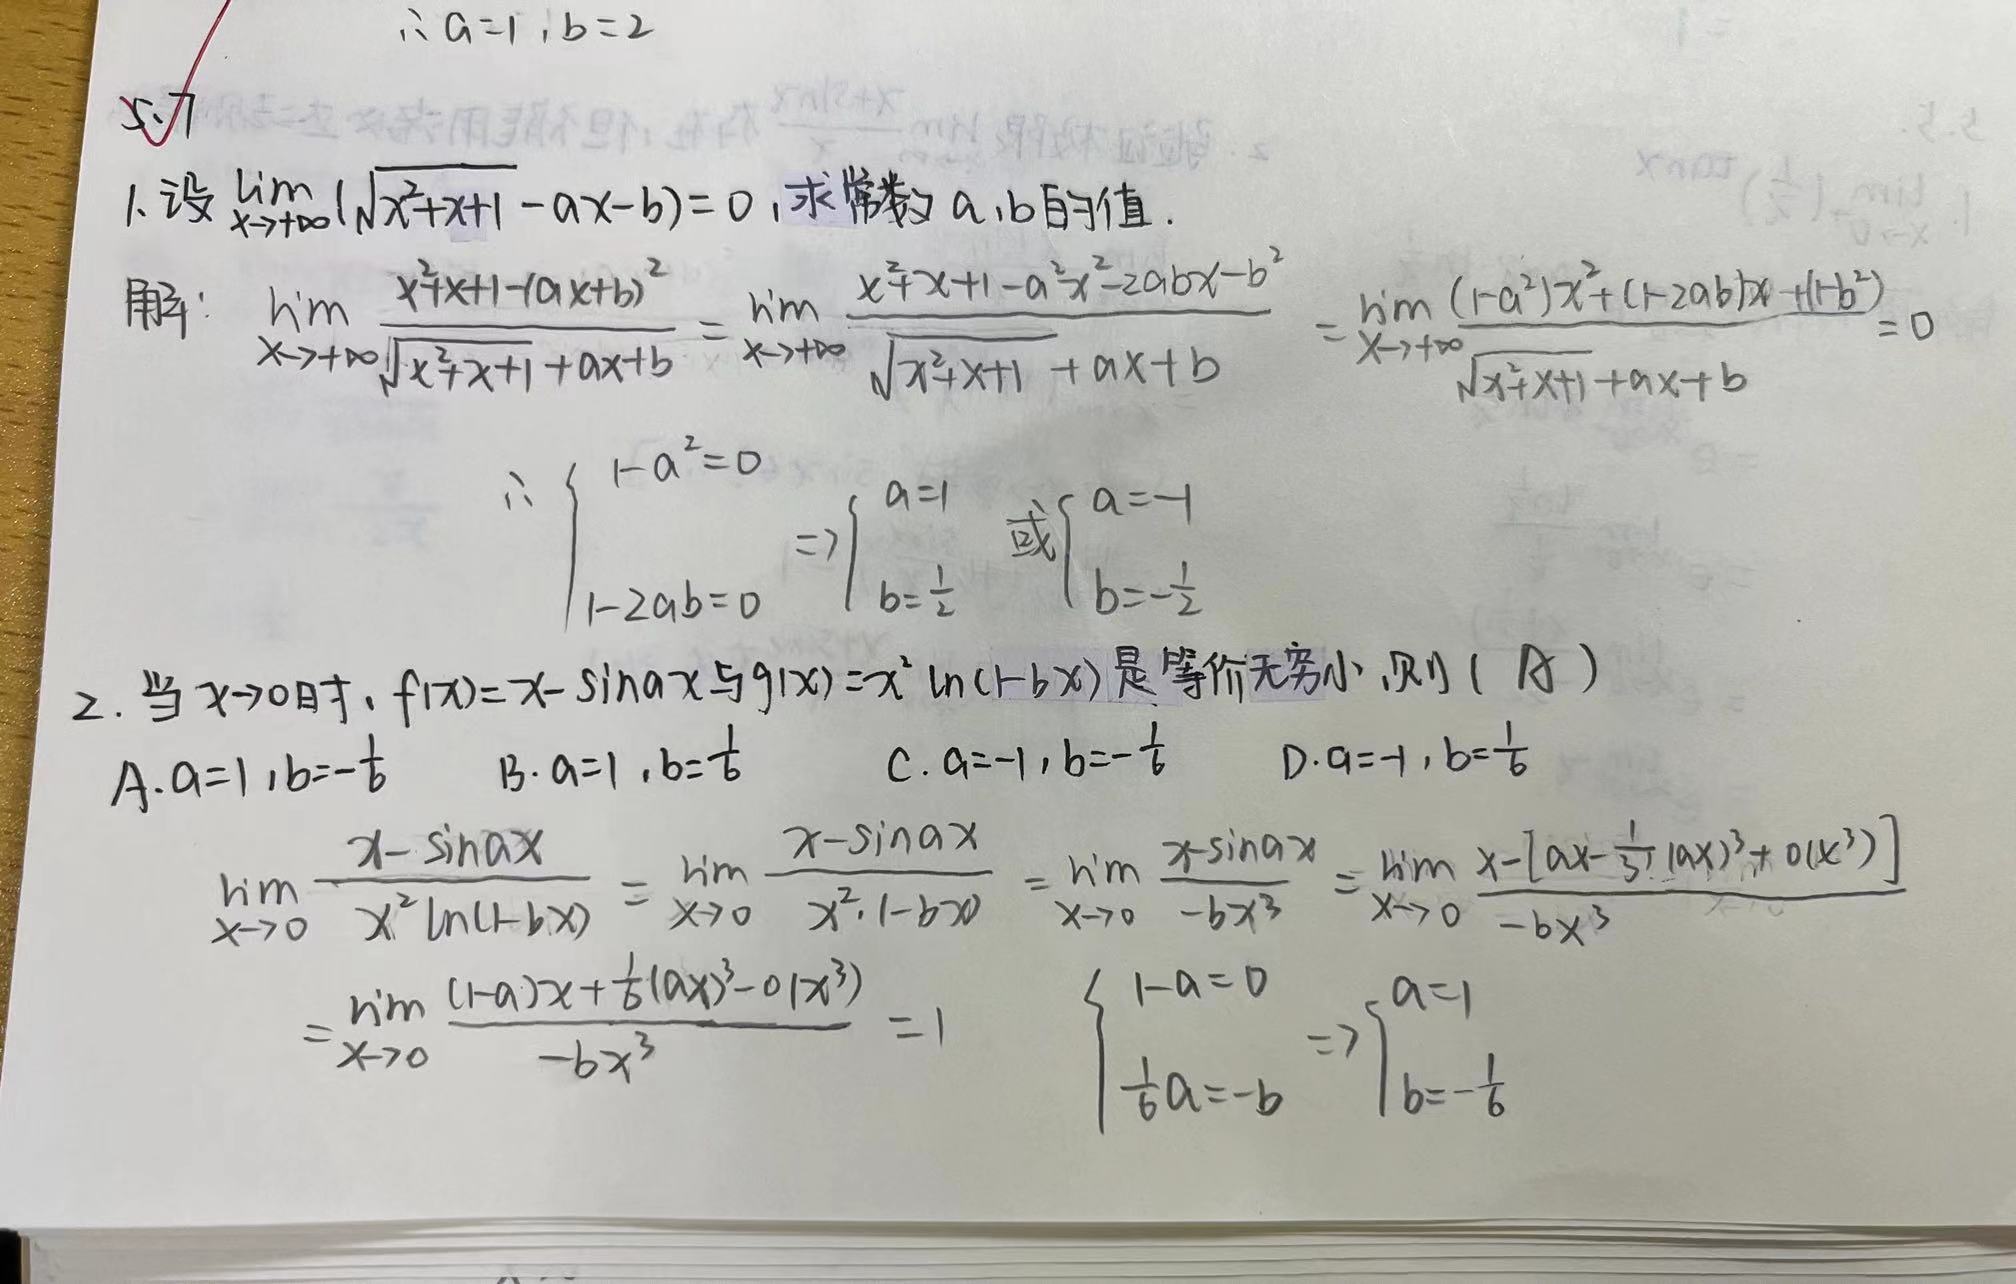 ∴ a=1, b=2
5.7
1. 设 lim_{x→+∞} (√(x²+x+1) - ax - b) = 0, 求常数 a, b 的值.
解: lim_{x→+∞} (x²+x+1-(ax+b)²)/(√(x²+x+1)+ax+b) = lim_{x→+∞} (x²+x+1-a²x²-2abx-b²)/(√(x²+x+1)+ax+b) = lim_{x→+∞} ((1-a²)x²+(1-2ab)x+(1-b²))/(√(x²+x+1)+ax+b) = 0
∴ { 1-a²=0, 1-2ab=0 => { a=1, b=1/2 或 { a=-1, b=-1/2
2. 当 x→0时, f(x)=x-sinax与g(x)=x²ln(1-bx)是等价无穷小, 则( A )
A. a=1, b=-1/6 B. a=1, b=1/6 C. a=-1, b=-1/6 D. a=-1, b=1/6
lim_{x→0} (x-sinax)/(x²ln(1-bx)) = lim_{x→0} (x-sinax)/(x²·(-bx)) = lim_{x→0} (x-sinax)/(-bx³) = lim_{x→0} (x-[ax-1/3!(ax)³+o(x³)])/(-bx³)
= lim_{x→0} ((1-a)x+1/6(ax)³-o(x³))/(-bx³) = 1 { 1-a=0, 1/6a=-b => { a=1, b=-1/6